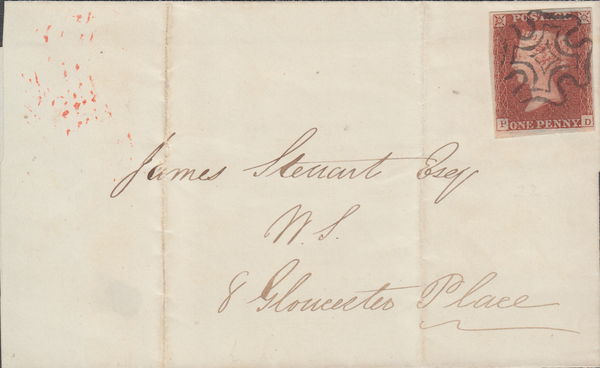 POSTAGE
P ONE PENNY D
James Steuart Esq
W.S.
8 Gloucester Place